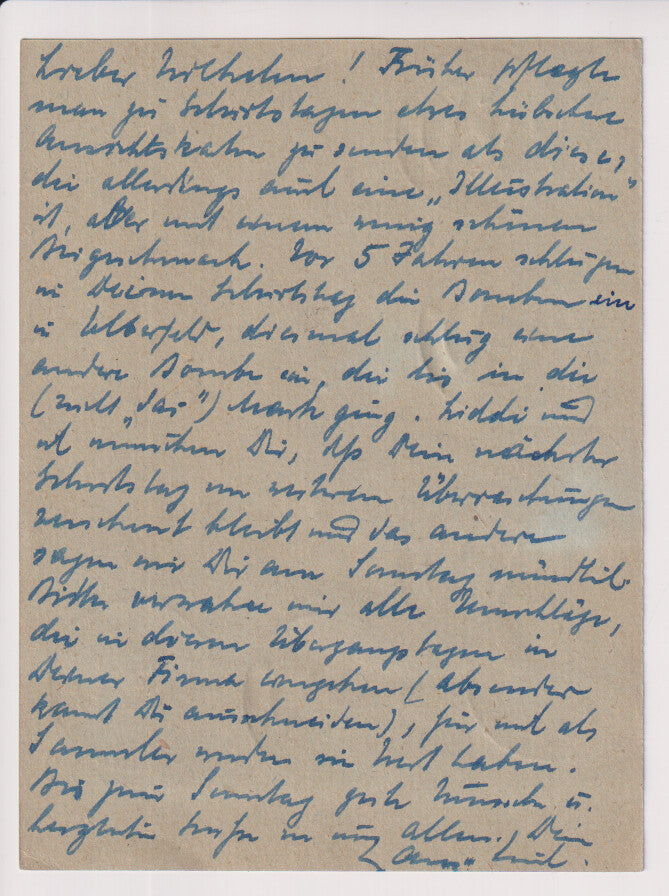 Lieber Wilhelm! Früher pflegte
man zu Geburtstagen etwas hübschere
Ansichtskarten zu senden als diese,
die allerdings auch eine „Illustration"
ist, aber mit einem wenig schönen
Beigeschmack. Vor 5 Jahren schlugen
an Deinem Geburtstag die Bomben ein
in Elberfeld, diesmal schlug eine
andere Bombe ein, die bis in die
(nicht „das") Mark ging. und
ich wünschen Dir, daß Dein nächster
Geburtstag von weiteren Überraschungen
verschont bleibt und das andere
sagen wir Dir am Sonntag mündlich.
Bitte verwahre mir alle Umschläge,
die in diesen Übergangstagen in
Deiner Firma eingehen (Absender
kannst Du ausschneiden), für mich als
Sammler werden sie Wert haben.
Bis zum Sonntag gute Wünsche u.
herzliche Grüße von uns allen. Dein